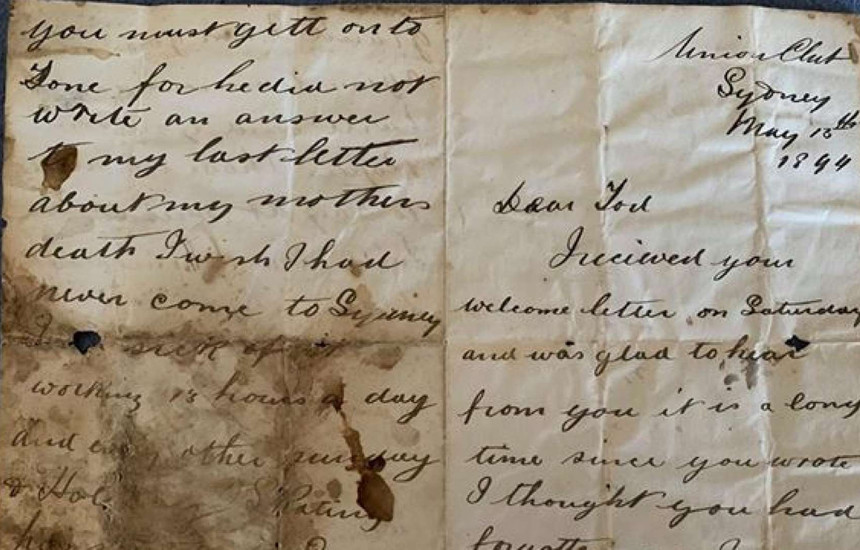 Union Club
Sydney
May 13th
1894
Dear Tod
I recieved your
welcome letter on Saturday
and was glad to hear
from you it is a long
time since you wrote
I thought you had
you must gett onto
for he did not
write an answer
to my last letter
about my mothers
death I wish I had
never come to Sydney
I sick of it
working 13 hours a day
and other sunday
& Hol